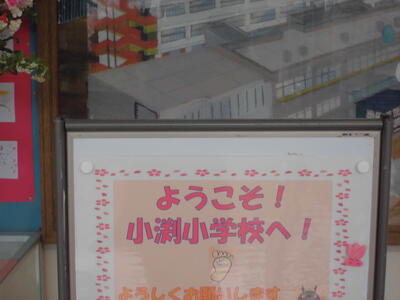 ようこそ！
小渕小学校へ！
よろしくお願いします